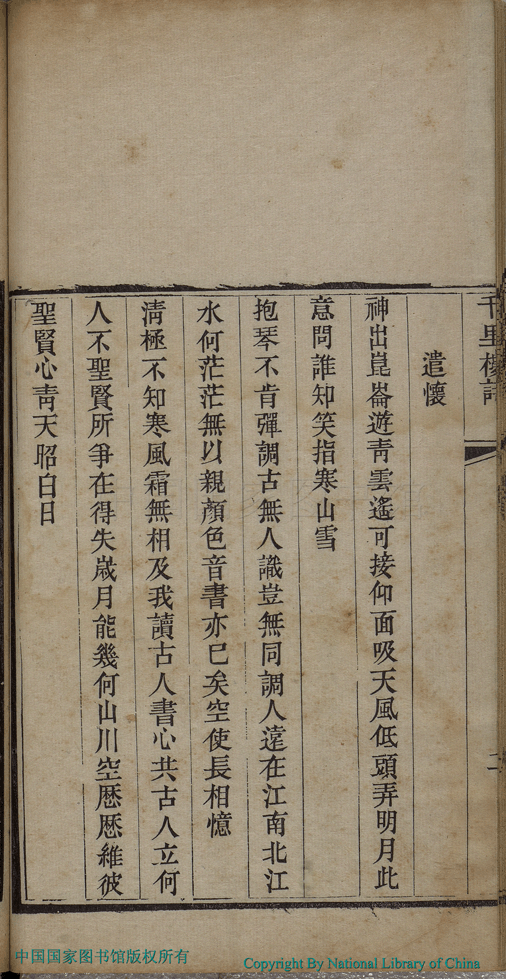 千里樓詩
二
遣懷
神出崑崙遊靑雲遙可接仰面吸天風低頭弄明月此
意問誰知笑指寒山雪
抱琴不肯彈調古無人識豈無同調人遠在江南北江
水何茫茫無以親顏色音書亦已矣空使長相憶
淸極不知寒風霜無相及我讀古人書心共古人立何
人不聖賢所爭在得失歲月能幾何山川空歷歷維彼
聖賢心靑天昭白日
中国国家图书馆版权所有
Copyright By National Library of China